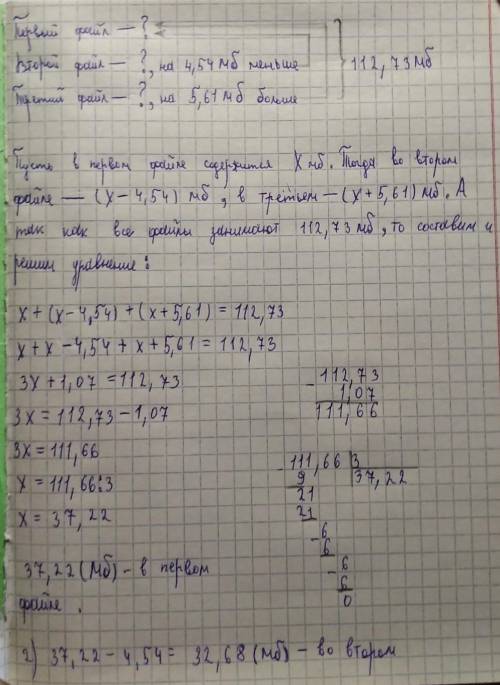 Первый файл — ?
Второй файл — ?, на 4,54 мб меньше
112,73 мб
Третий файл — ?, на 5,61 мб больше
Пусть в первом файле содержится X мб. Тогда во втором
файле — (x - 4,54) мб, в третьем — (x + 5,61) мб. А
так как все файлы занимают 112,73 мб, то составим и
решим уравнение:
x + (x - 4,54) + (x + 5,61) = 112,73
x + x - 4,54 + x + 5,61 = 112,73
3x + 1,07 = 112,73
3x = 112,73 - 1,07
3x = 111,66
x = 111,66:3
x = 37,22
- 112,73
1,07
111,66
- 111,66 3
9 37,22
21
21
- 6
6
- 6
6
0
37,22 (Мб) - в первом
файле.
2) 37,22 - 4,54 = 32,68 (мб) - во втором